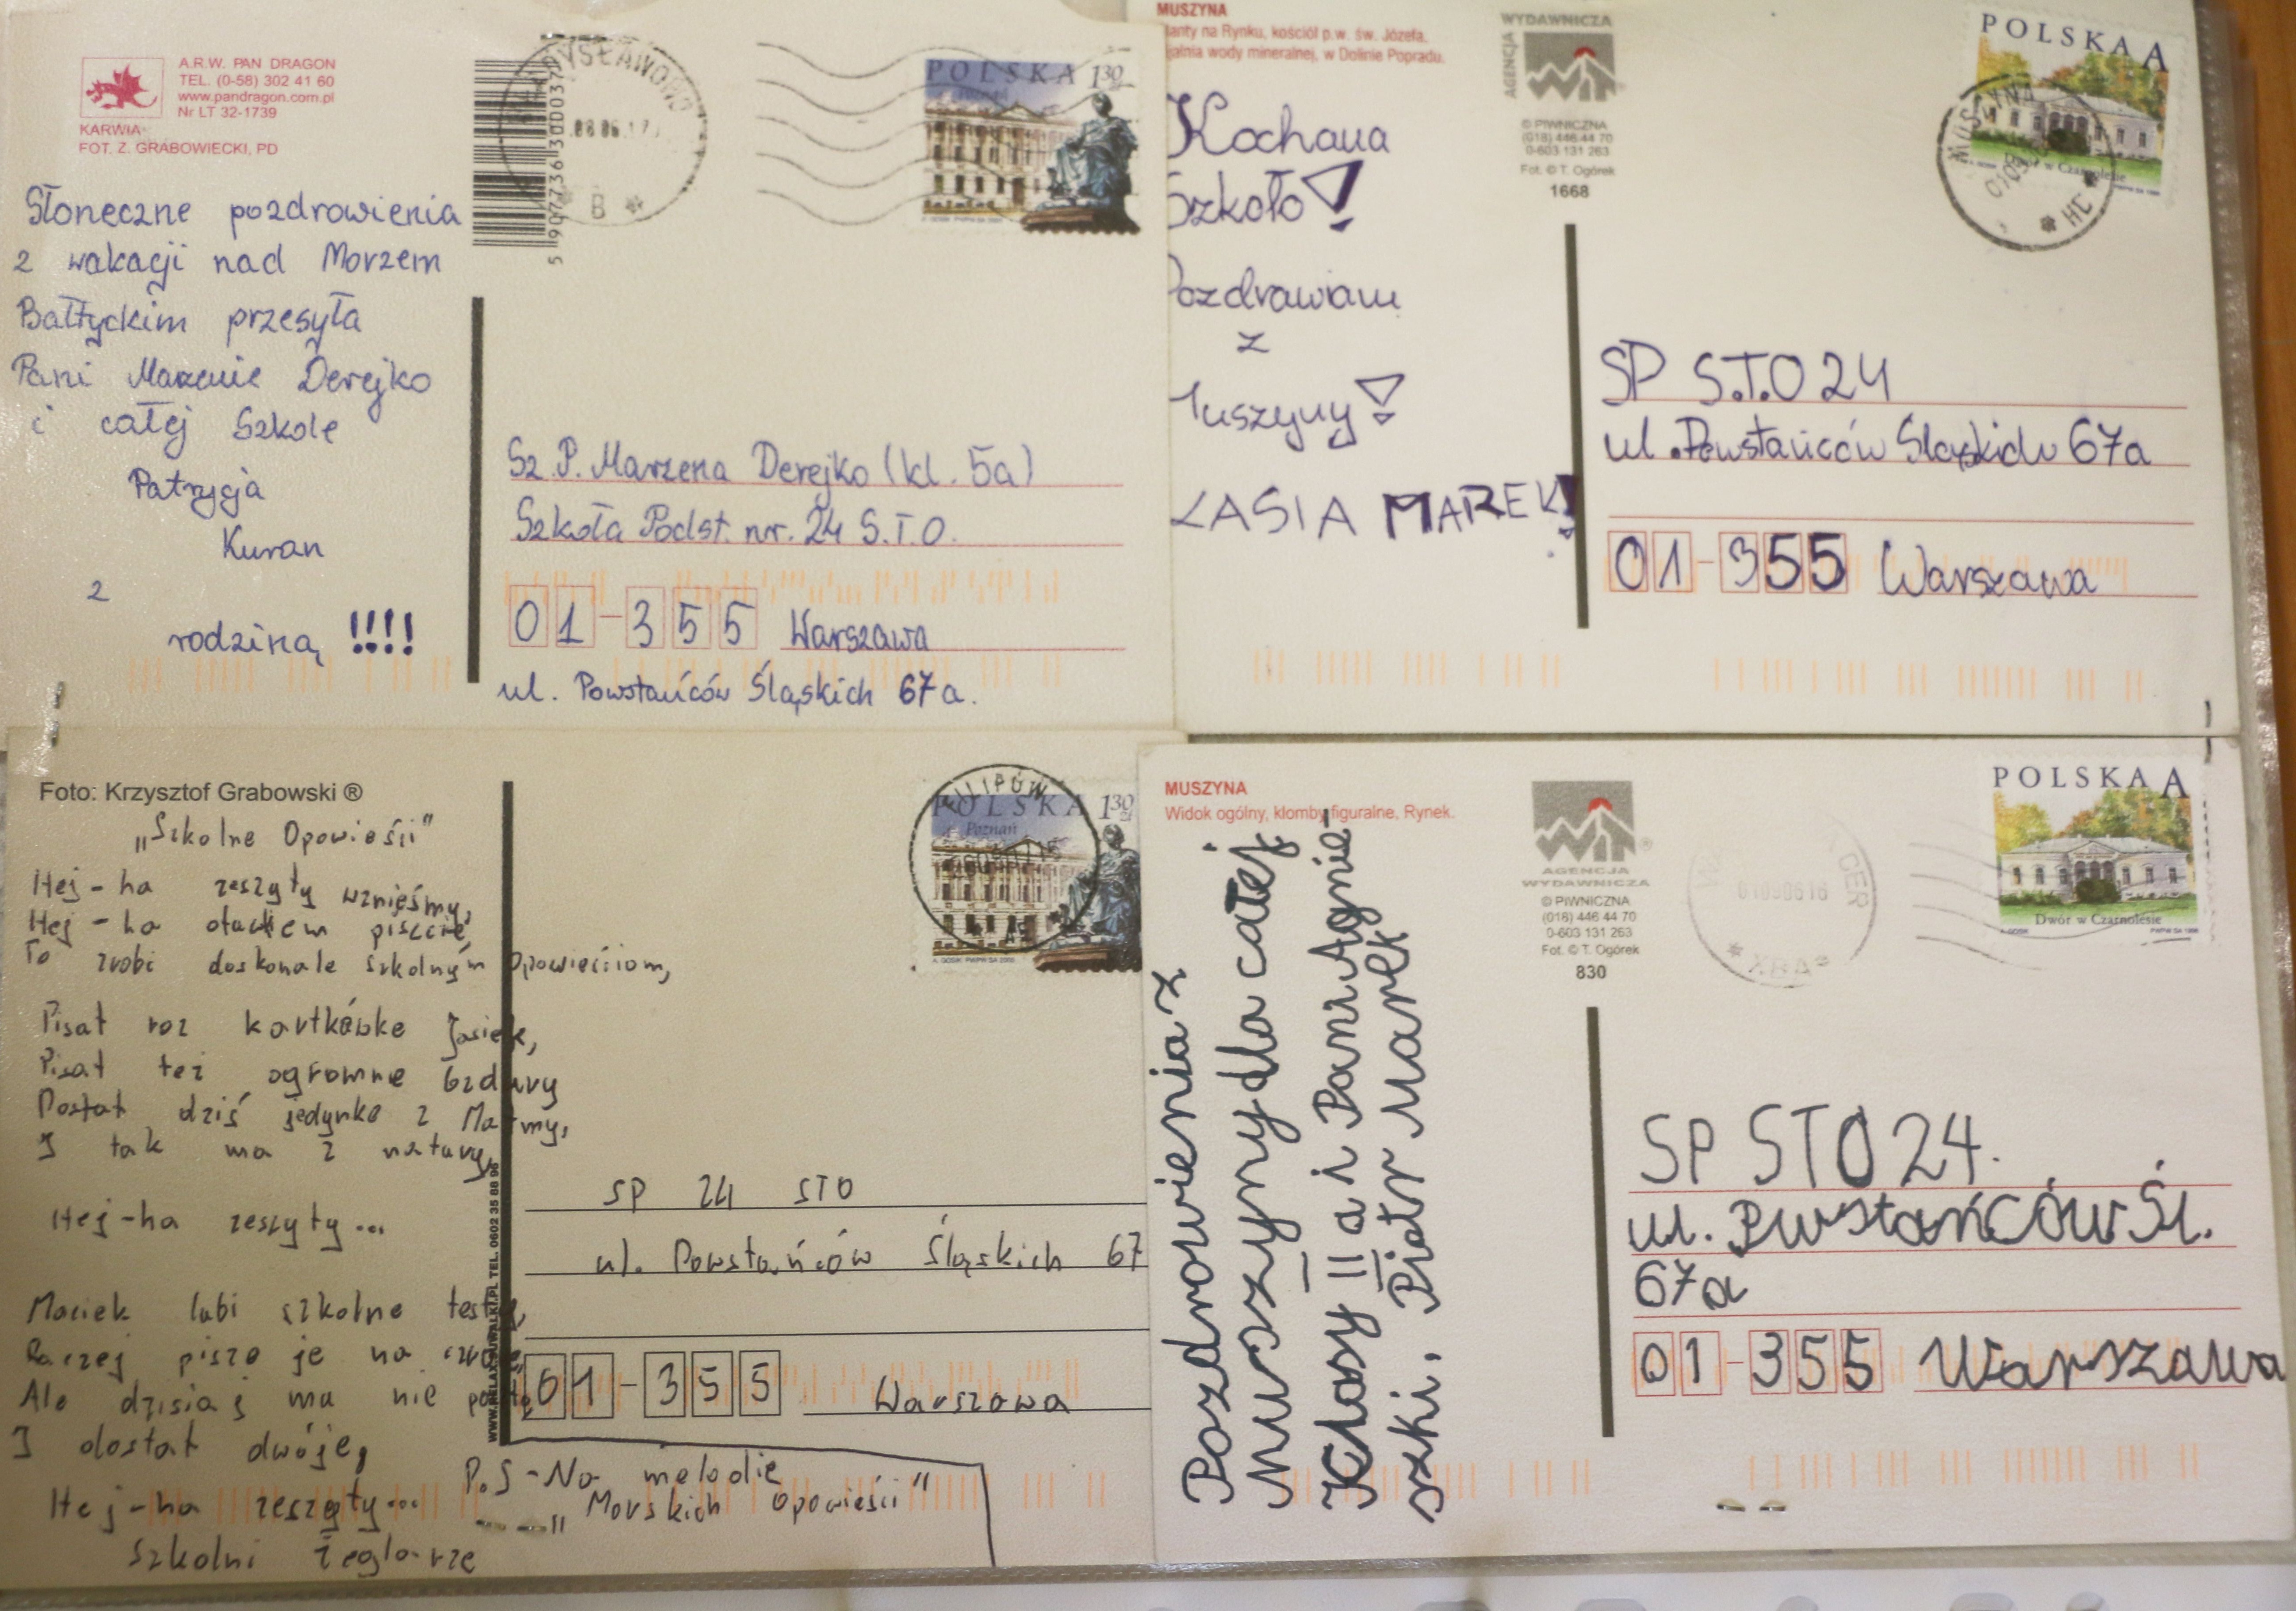 A.R.W. PAN DRAGON
TEL. (0-58) 302 41 60
www.pandragon.com.pl
Nr LT 32-1739
KARWIA
FOT. Z. GRABOWIECKI, PD
Słoneczne pozdrowienia
z wakacji nad Morzem
Bałtyckim przesyła
Pani Marzenie Derejko
i całej Szkole
Patrycja
Kuran
z
rodziną !!!!
B
POLSKA 130
Sz. P. Marzena Derejko (kl. 5a)
Szkoła Podst. nr. 24 S.T.O.
01-355 Warszawa
ul. Powstańców Śląskich 67a.
MUSZYNA
lanty na Rynku, kościół p.w. św. Józefa,
jalnia wody mineralnej, w Dolinie Popradu.
Kochana
Szkoło!
Pozdrawiam
z
Muszyny!
KASIA MAREK!
AGENCJA
WYDAWNICZA
© PIWNICZNA
(018) 446 44 70
0-603 131 263
Fot. © T. Ogórek
1668
POLSKA A
MUSZYNA
SP S.T.O 24
ul. Powstańców Śląskich 67a
01-355 Warszawa
Foto: Krzysztof Grabowski ®
„Szkolne Opowieśii"
Hej-ha zeszyty wznieśmy,
Hej-ha ołówkiem piszcie,
To zrobi doskonale szkolnym opowieściom,
Pisał raz kartkówke Jasiek,
Pisał też ogromne bzdury
Dostał dziś jedynke z Matmy,
I tak ma z natury,
Hej-ha zeszyty...
Maciek lubi szkolne testy,
Raczej pisze je na
Ale dzisiaj mu nie
I dostał dwóje,
Hej-ha zeszyty...
Szkolni żeglarze
P.S-Na melodie
„Morskich opowieśii"
TEL. 0602 35 88 96
FILIPÓW
POLSKA 130
Poznań
SP 24 STO
ul. Powstańców Śląskich 67
01-355 Warszawa
MUSZYNA
Widok ogólny, klomby figuralne, Rynek.
Pozdrowienia z
Muszyny dla całej
Klasy II a i Pani Agnie-
szki. Piotr Marek
AGENCJA
WYDAWNICZA
© PIWNICZNA
(018) 446 44 70
0-603 131 263
Fot. © T. Ogórek
830
POLSKA A
Dwór w Czarnolesie
SP STO 24.
ul. Pwstańców Śl.
67a
01-355 Warszawa